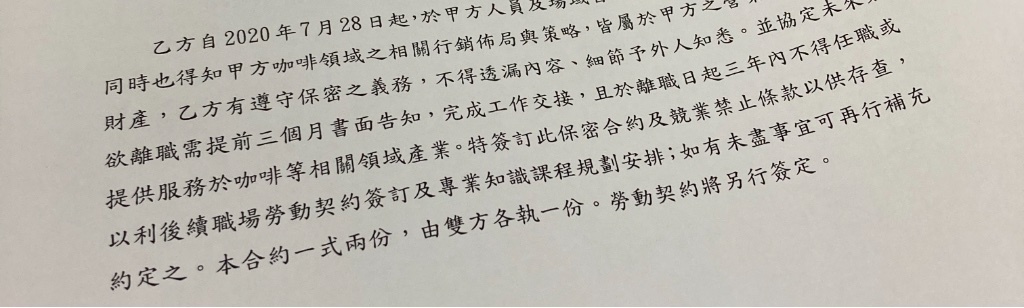 乙方自 2020 年 7 月 28 日起，於甲方人員及場域
同時也得知甲方咖啡領域之相關行銷佈局與策略，皆屬於甲方之營
財產，乙方有遵守保密之義務，不得透漏內容、細節予外人知悉。並協定未來
欲離職需提前三個月書面告知，完成工作交接，且於離職日起三年內不得任職或
提供服務於咖啡等相關領域產業。特簽訂此保密合約及競業禁止條款以供存查，
以利後續職場勞動契約簽訂及專業知識課程規劃安排；如有未盡事宜可再行補充
約定之。本合約一式兩份，由雙方各執一份。勞動契約將另行簽定。